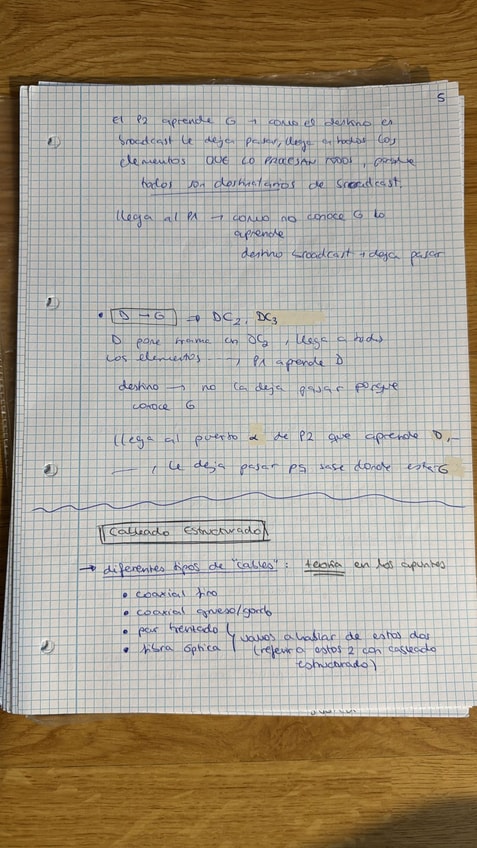 5
El P2 aprende G → como el destino es
broadcast le deja pasar, llega a todos los
elementos QUE LO PROCESAN TODOS, porque
todos son destinatarios de broadcast.
llega al P1 → como no conoce G lo
aprende
destino broadcast → deja pasar
• D → G ⇒ DC2, DC3
D pone trama en DC2, llega a todos
los elementos ---→ P1 aprende D
destino → no la deja pasar porque
conoce G
llega al puerto α de P2 que aprende D, —
—, le deja pasar pq sabe donde esta G
Cableado estructurado
→ diferentes tipos de "cables": teoría en los apuntes
• coaxial fino
• coaxial grueso/gordo
• par trenzado
• fibra óptica
vamos a hablar de estos dos
(referir a estos 2 con cableado
estructurado)